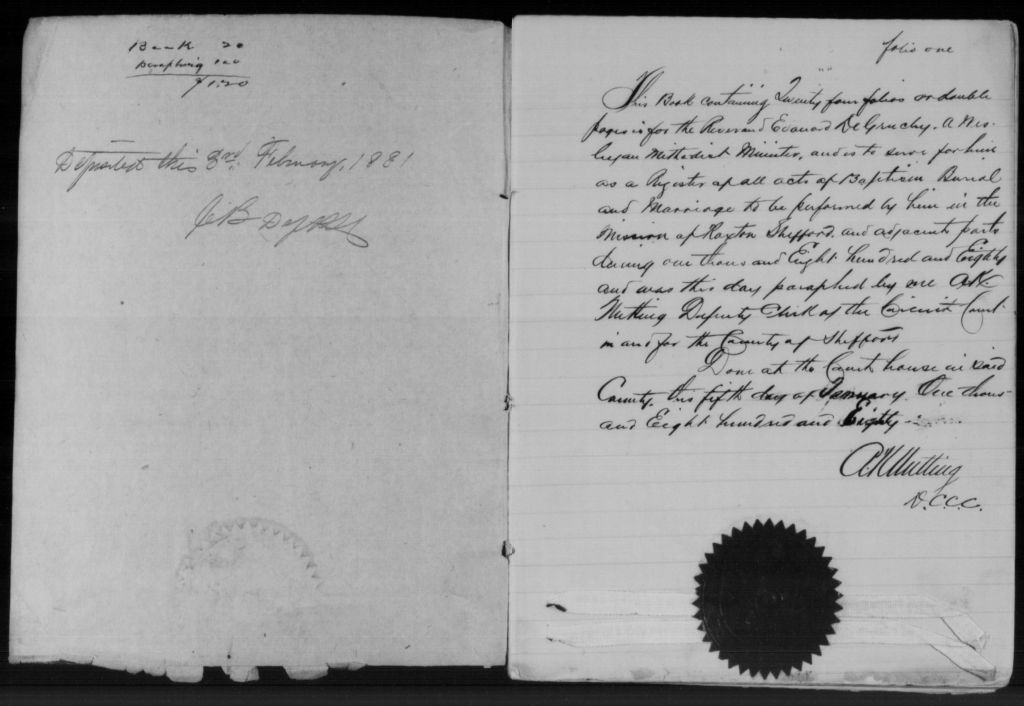 Book 20
Paraphing 1 00
$1.20
Deposited this 3rd February, 1881
folio one
This Book containing Twenty four folios or double
pages is for the Reverend Edouard DeGruchy. A Wes-
leyan Methodist Minister, and is to serve for him
as a Register of all acts of Baptism Burial
and Marriage to be performed by him in the
Mission of Roxton Shefford. and adjacents parts
during one thousand Eight hundred and Eighty
and was this day paraphed by me A K
Nutting Deputy Clerk of the Circuit Court
in and for the County of Shefford
Done at the Court house in said
County. this fifth day of January. One thous-
and Eight hundred and Eighty.-
A K Nutting
D.C.C.C.